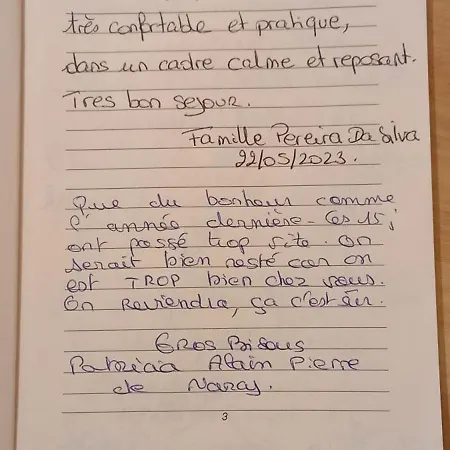 très confortable et pratique,
dans un cadre calme et reposant.
Tres bon sejour.
Famille Pereira Da Silva
22/05/2023.
Que du bonheur comme
l'année dernière - Ces 15 j
ont passé trop vite. On
serait bien resté car on
est TROP bien chez vous.
On Reviendra, ça c'est sûr.
Gros Bisous
Patricia Alain Pierre
de Nancy.
3